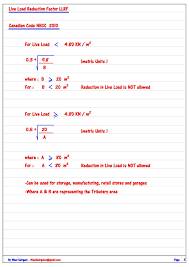 Live Load Reduction Factor LLRF
Canadian Code NBCC 2010
For Live Load < 4.80 KN / m²
0.3 + √ 9.8 / B (metric Units)
where : B > 20 m²
For B ≤ 20 m² Reduction in Live Load is NOT allowed
For Live Load ≥ 4.80 KN / m²
0.5 + √ 20 / A (metric Units)
where : A > 20 m²
For A ≤ 20 m² Reduction in Live Load is NOT allowed
-Can be used for storage, manufacturing, retail stores and garages
-Where A & B are representing the Tributary area
Page :